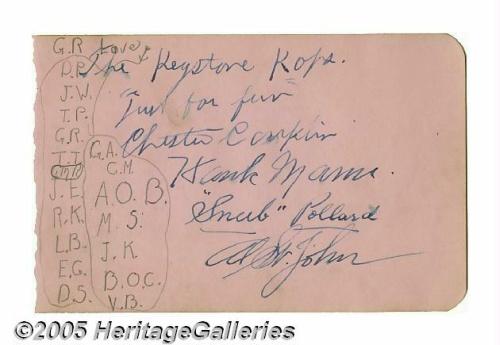 The Keystone Kops.
"Just for fun"
Chester Conklin
Hank Mann.
"Snub" Pollard
Al St. John
G.R
D.P.
J.W.
T.P.
G.R.
J.E.
R.K.
L.B.
E.G.
D.S.
G.A.
C.M.
A.O.B.
M.S.
J.K.
B.O.C.
V.B.
©2005 HeritageGalleries